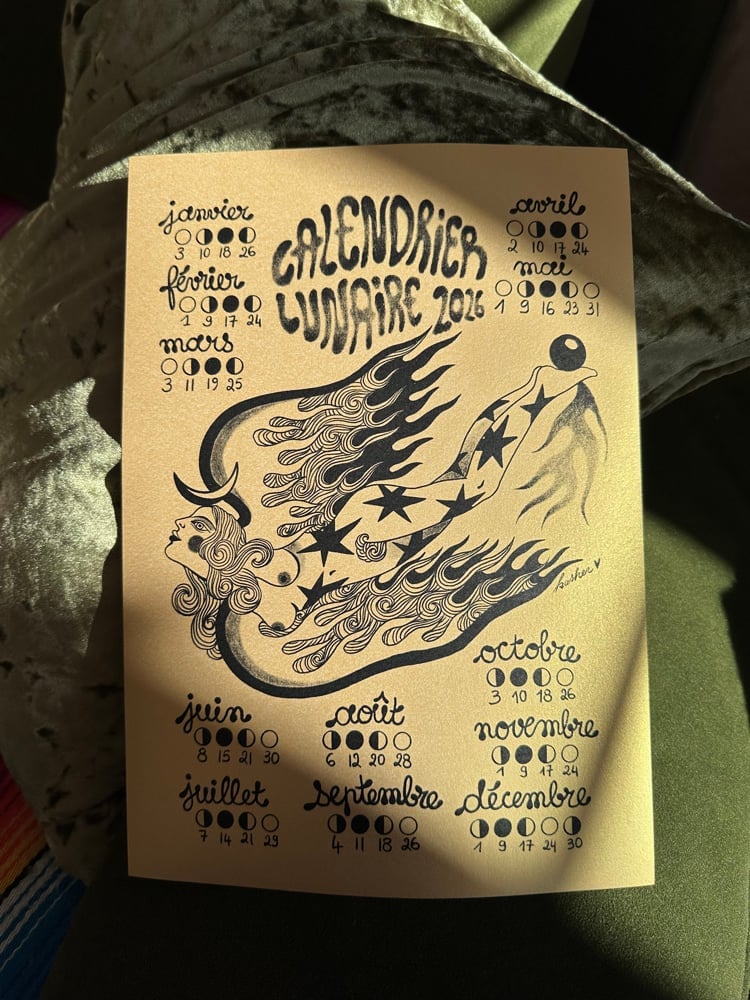 CALENDRIER
LUNAIRE 2026
janvier
3 10 18 26
février
1 9 17 24
mars
3 11 19 25
avril
2 10 17 24
mai
1 9 16 23 31
kusher
juin
8 15 21 30
juillet
7 14 21 29
août
6 12 20 28
septembre
4 11 18 26
octobre
3 10 18 26
novembre
1 9 17 24
décembre
1 9 17 24 30